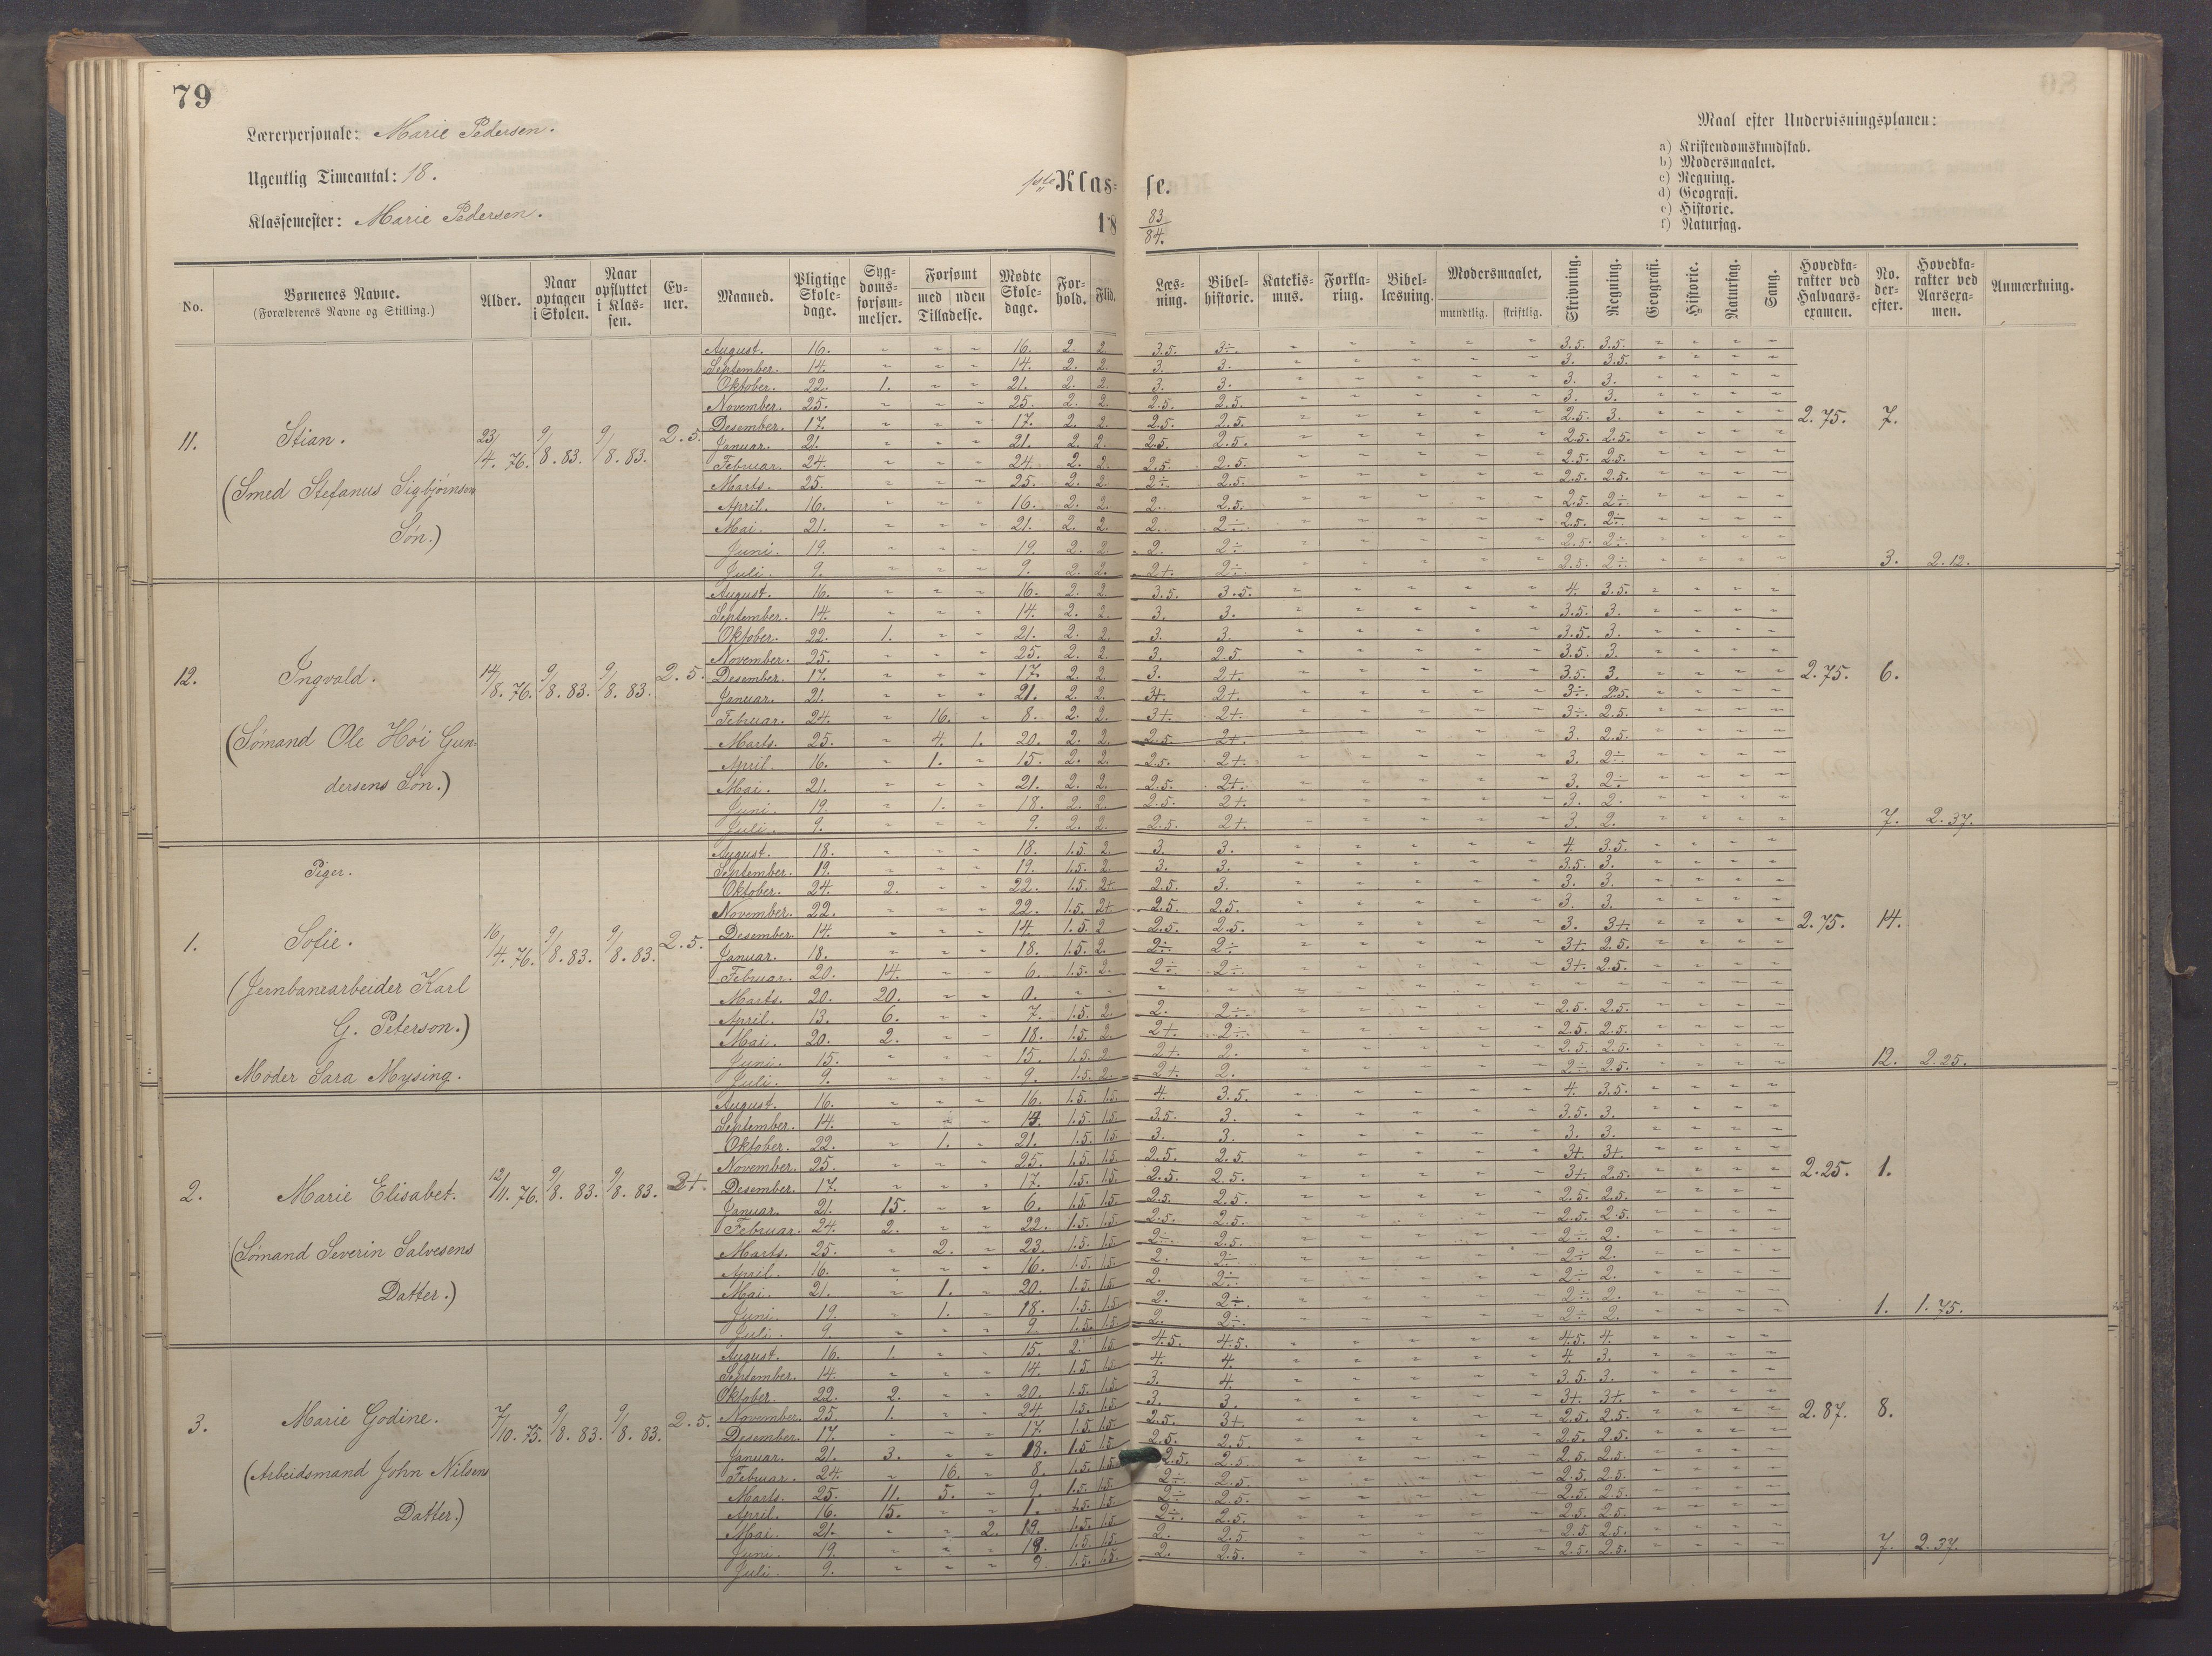 79
Lærerpersonale: Marie Pedersen.
Ugentlig Timeantal: 18.
Klassemester: Marie Pedersen.
1ste Klasse.
18 83/84.
Maal efter Undervisningsplanen:
a) Kristendomskundskab.
b) Modersmaalet.
c) Regning.
d) Geografi.
e) Historie.
f) Naturfag.
No. Børnenes Navne. (Forældrenes Navne og Stilling.) Alder. Naar optagen i Skolen. Naar opflyttet i Klassen. Evner. Maaned. Pligtige Skoledage. Sygdomsforsømmelser. Forsømt med uden Tilladelse. Mødte Skoledage. Forhold. Flid. Læsning. Bibelhistorie. Katekismus. Forklaring. Bibellæsning. Modersmaalet, mundtlig. skriftlig. Skrivning. Regning. Geografi. Historie. Naturfag. Sang. Hovedkarakter ved Halvaarsexamen. No. derefter. Hovedkarakter ved Aarsexamen. Anmærkning.
11. Stian. 23/4. 76. 9/8. 83. 9/8. 83. 2.5. 2.75. 7.
(Smed Stefanus Sigbjørnsen
Søn.)
August. 16. 16. 2. 2. 3.5. 3÷. 3.5. 3.5.
September. 14. 14. 2. 2. 3. 3. 3. 3.5.
Oktober. 22. 1. 21. 2. 2. 3. 3. 3. 3.
November. 25. 25. 2. 2. 2.5. 2.5. 3. 3.
Desember. 17. 17. 2. 2. 2.5. 2.5. 2.5. 3.
Januar. 21. 21. 2. 2. 2.5. 2.5. 2.5. 2.5.
Februar. 24. 24. 2. 2. 2.5. 2.5. 2.5. 2.5.
Marts. 25. 25. 2. 2. 2÷. 2.5. 2.5. 2.5.
April. 16. 16. 2. 2. 2. 2.5. 2.5. 2÷.
Mai. 21. 21. 2. 2. 2. 2÷. 2.5. 2÷.
Juni. 19. 19. 2. 2. 2. 2÷. 2.5. 2÷.
Juli. 9. 9. 2. 2. 2+. 2÷. 2.5. 2÷. 3. 2.12.
12. Ingvald. 14/8. 76. 9/8. 83. 9/8. 83. 2.5. 2.75. 6.
(Sømand Ole Høi Gun-
dersens Søn.)
August. 16. 16. 2. 2. 3.5. 3.5. 4. 3.5.
September. 14. 14. 2. 2. 3. 3. 3.5. 3.
Oktober. 22. 1. 21. 2. 2. 3. 3. 3.5. 3.
November. 25. 25. 2. 2. 3. 2.5. 3.5. 3.
Desember. 17. 17. 2. 2. 3. 2+. 3.5. 3.
Januar. 21. 21. 2. 2. 3+. 2+. 3÷. 2.5.
Februar. 24. 16. 8. 2. 2. 3+. 2+. 3÷. 2.5.
Marts. 25. 4. 1. 20. 2. 2. 2.5. 2+. 3. 2.5.
April. 16. 1. 15. 2. 2. 2.5. 2+. 3. 2÷.
Mai. 21. 21. 2. 2. 2.5. 2+. 3. 2÷.
Juni. 19. 1. 18. 2. 2. 2.5. 2+. 3. 2.
Juli. 9. 9. 2. 2. 2.5. 2+. 3. 2. 7. 2.37.
Piger.
1. Sofie. 16/4. 76. 9/8. 83. 9/8. 83. 2.5. 2.75. 14.
(Jernbanearbeider Karl
G. Peterson.)
Moder Sara Mysing.
August. 18. 18. 1.5. 2. 3. 3. 4. 3.5.
September. 19. 19. 1.5. 2. 3. 3. 3.5. 3.
Oktober. 24. 2. 22. 1.5. 2+. 2.5. 3. 3. 3.
November. 22. 22. 1.5. 2+. 2.5. 2.5. 3. 3.
Desember. 14. 14. 1.5. 2. 2.5. 2.5. 3. 3+.
Januar. 18. 18. 1.5. 2. 2÷. 2÷. 3+. 2.5.
Februar. 20. 14. 6. 1.5. 2. 2÷. 2÷. 3+. 2.5.
Marts. 20. 20. 0.
April. 13. 6. 7. 1.5. 2. 2. 2÷. 2.5. 2.5.
Mai. 20. 2. 18. 1.5. 2. 2+. 2÷. 2.5. 2.5.
Juni. 15. 15. 1.5. 2. 2+. 2. 2.5. 2.5.
Juli. 9. 9. 1.5. 2. 2+. 2. 2÷. 2.5. 12. 2.25.
2. Marie Elisabet. 12/11. 76. 9/8. 83. 9/8. 83. 2.25. 1.
(Sømand Severin Salvesens
Datter.)
August. 16. 16. 1.5. 1.5. 4. 3.5. 4. 3.5.
September. 14. 1.5. 1.5. 3.5. 3. 3.5. 3.
Oktober. 22. 1. 21. 1.5. 1.5. 3. 3. 3. 3.
November. 25. 25. 1.5. 1.5. 2.5. 2.5. 3+. 3+.
Desember. 17. 17. 1.5. 1.5. 2.5. 2.5. 3+. 2.5.
Januar. 21. 15. 6. 1.5. 1.5. 2.5. 2.5. 2.5. 2.5.
Februar. 24. 2. 22. 1.5. 1.5. 2.5. 2.5. 2.5. 2.5.
Marts. 25. 2. 23. 1.5. 1.5. 2÷. 2.5. 2÷. 2.
April. 16. 16. 1.5. 1.5. 2. 2÷. 2÷. 2.
Mai. 21. 1. 20. 1.5. 1.5. 2. 2÷. 2÷. 2.
Juni. 19. 1. 18. 1.5. 1.5. 2. 2÷. 2÷. 2.
Juli. 9. 9. 1.5. 1.5. 2. 2÷. 2÷. 2. 1. 1.75.
3. Marie Godine. 7/10. 75. 9/8. 83. 9/8. 83. 2.5. 2.87. 8.
(Arbeidsmand John Nilsens
Datter.)
August. 16. 1. 15. 2. 1.5. 4.5. 4.5. 4.5. 4.
September. 14. 14. 1.5. 1.5. 4. 4. 4. 3.
Oktober. 22. 2. 20. 1.5. 1.5. 3. 4. 3.5. 3.
November. 25. 1. 24. 1.5. 1.5. 3. 3. 3+. 3+.
Desember. 17. 17. 1.5. 1.5. 2.5. 3+. 2.5. 2.5.
Januar. 21. 3. 18. 1.5. 1.5. 2.5. 2.5. 2.5. 2.5.
Februar. 24. 16. 8. 1.5. 1.5. 2.5. 2.5. 2.5. 2.5.
Marts. 25. 11. 5. 9. 1.5. 1.5. 2÷. 2.5. 2.5. 2.5.
April. 16. 15. 1. 1.5. 1.5. 2÷. 2.5. 2.5. 2.5.
Mai. 21. 2. 19. 1.5. 1.5. 2÷. 2.5. 2.5. 2.5.
Juni. 19. 19. 1.5. 1.5. 2. 2.5. 2.5. 2.5.
Juli. 9. 9. 1.5. 1.5. 2. 2.5. 2.5. 2.5. 7. 2.37.